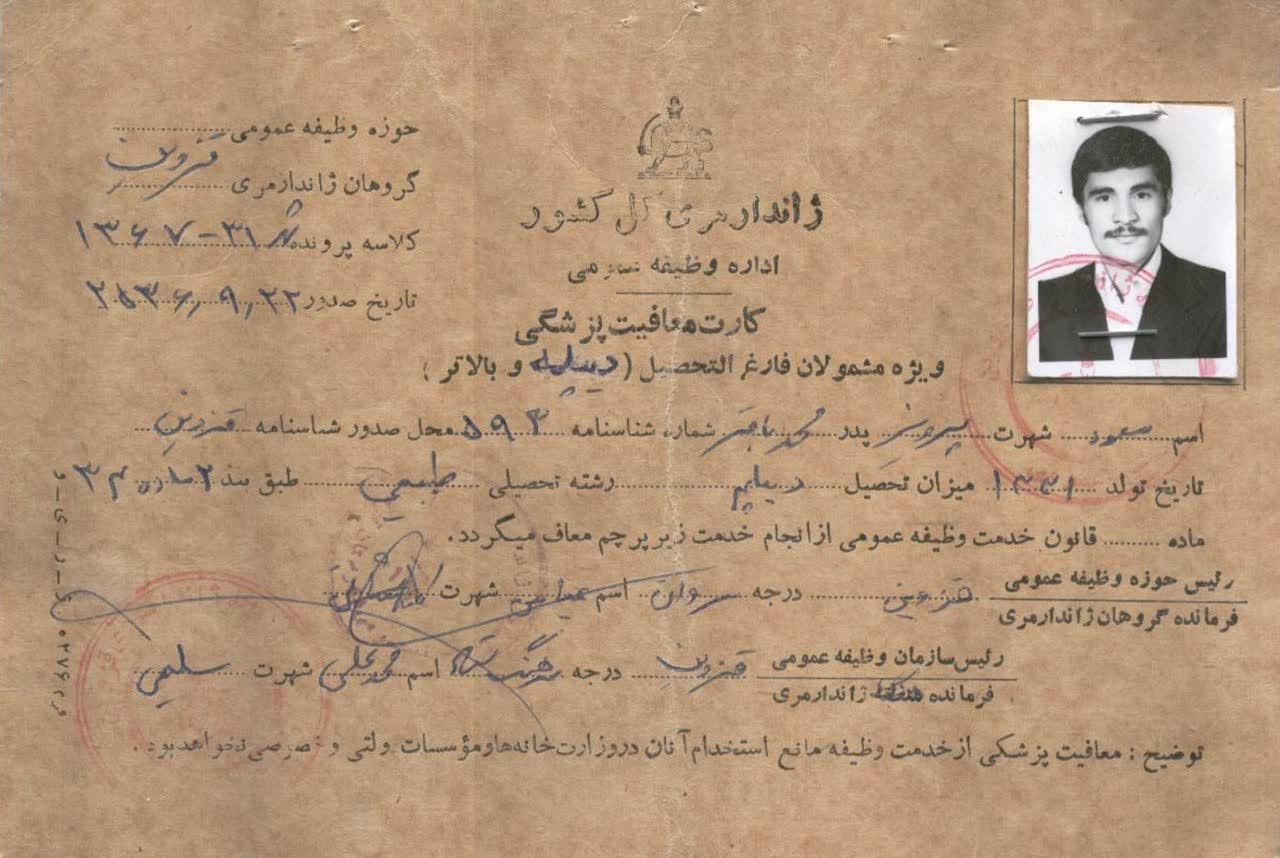 حوزه وظیفه عمومی
گروهان ژاندارمری قزوین
کلاسه پرونده ۳۱-۱۳۶۷
تاریخ صدور ۲۵۳۶٫۹٫۲۲
ژاندارمری کل کشور
اداره وظیفه عمومی
کارت معافیت پزشکی
ویژه مشمولان فارغ التحصیل ( دیپلمه و بالاتر )
اسم مسعود شهرت پدر محمد باقر شماره شناسنامه ۵۹۳ محل صدور شناسنامه قزوین
تاریخ تولد ۱۳۳۱ میزان تحصیل دیپلم رشته تحصیلی طبیعی طبق بند ۲ ماده ۳۴
ماده قانون خدمت وظیفه عمومی از انجام خدمت زیر پرچم معاف میگردد .
رئیس حوزه وظیفه عمومی
فرمانده گروهان ژاندارمری
قزوین درجه سروان اسم عباس شهرت
رئیس سازمان وظیفه عمومی
فرمانده ژاندارمری
قزوین درجه سرهنگ اسم محمد علی شهرت سلیمی
توضیح : معافیت پزشکی از خدمت وظیفه مانع استخدام آنان در وزارت خانه ها و مؤسسات دولتی و خصوصی نخواهد بود .